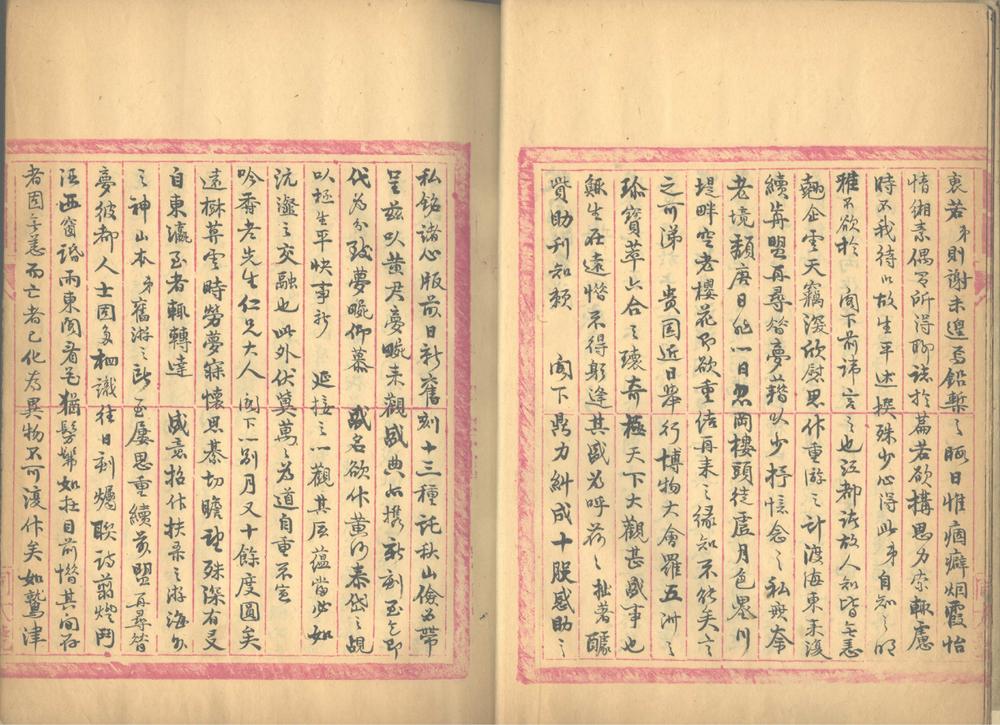 裏若弟則謝未遑焉鉛槧之晦日惟痼癖烟霞怡
情緗素偶有所得聊誌於篇若欲構思力索輒慮
時不我待以故生平述撰殊少心得此弟自知之明
雅不欲於閣下前諱言之也江都諸故人知皆無恙
翹企雲天竊深欣慰思作重游之計渡海東來復
續舊盟再尋昔夢藉以少抒憶念之私無奈
老境頹唐日甚一日忍岡樓頭徒虛月色墨川
堤畔空老櫻花即欲重結再來之緣知不能矣言
之可涕 貴國近日舉行博物大會羅五洲之
珍寶萃六合之瓌奇極天下大觀甚盛事也
鯫生在遠惜不得躬逢其盛為呼荷荷拙著醵
貲助刊知賴 閣下鼎力糾成十股感助之
私銘諸心版前日新舊刻十三種託秋山儉為帶
呈茲以黄君夢畹來觀盛典水攜新刻至乞即
代為分致夢畹仰慕 盛名欲作黄河泰岱之觀
以極生平快事祈 延接之一觀其底蘊當必如
沆瀣之交融也此外伏冀萬萬為道自重不宣
吟香老先生仁兄大人 閣下一別月又十餘度圓矣
遠樹莽雲時勞夢寐懷思綦切瞻望殊深有友
自東瀛至者輒轉達 盛意招作扶桑之游海外
之神山本弟舊游之所至屢思重續前盟再尋昔
夢彼都人士固多相識往日刻燭聯詩翦燈鬥
酒西窗話雨東閣看花猶髣髴如在目前惜其間存
者固無恙而亡者已化為異物不可復作矣如鷲津